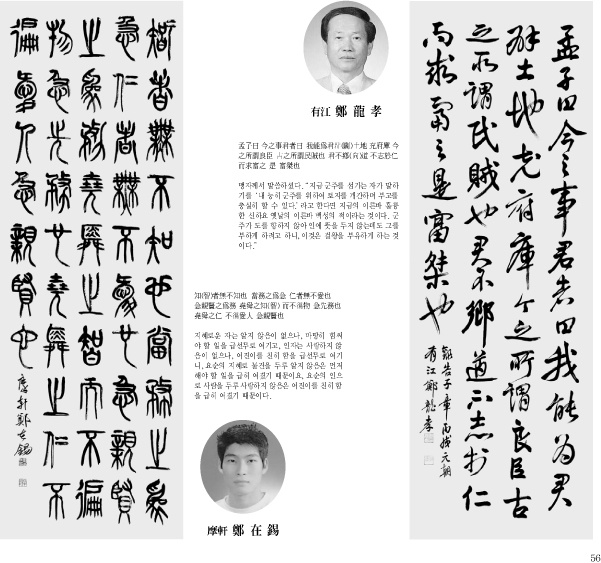 智者無不知也當務之爲
急仁者無不愛也急親賢
之爲務堯舜之智而不徧
物急先務也堯舜之仁不
徧愛人急親賢也
摩軒鄭在錫
有江 鄭龍孝
孟子曰 今之事君者曰 我能爲君辟(闢)土地 充府庫 今
之所謂良臣 古之所謂民賊也 君不鄕(向)道 不志於仁
而求富之 是 富桀也
맹자께서 말씀하셨다. “지금 군주를 섬기는 자가 말하
기를 ‘내 능히 군주를 위하여 토지를 개간하며 부고를
충실히 할 수 있다.’ 라고 한다면 지금의 이른바 훌륭
한 신하요 옛날의 이른바 백성의 적이라는 것이다. 군
주가 도를 향하지 않아 인에 뜻을 두지 않는데도 그를
부하게 하려고 하니, 이것은 걸왕을 부유하게 하는 것
이다.”
知(智)者無不知也 當務之爲急 仁者無不愛也
急親賢之爲務 堯舜之知(智) 而不徧物 急先務也
堯舜之仁 不徧愛人 急親賢也
지혜로운 자는 알지 않음이 없으나, 마땅히 힘써
야 할 일을 급선무로 여기고, 인자는 사랑하지 않
음이 없으나, 어진이를 친히 함을 급선무로 여기
니, 요순의 지혜로 물건을 두루 알지 않음은 먼저
해야 할 일을 급히 여겼기 때문이요, 요순의 인으
로 사람을 두루 사랑하지 않음은 어진이를 친히 함
을 급히 여겼기 때문이다.
摩軒 鄭在錫
孟子曰今之事君者曰我能为君
辟土地充府庫今之所謂良臣古
之所謂民賊也君不鄉道不志於仁
而求富之是富桀也
錄告子章丙戌元朝
有江鄭龍孝
56